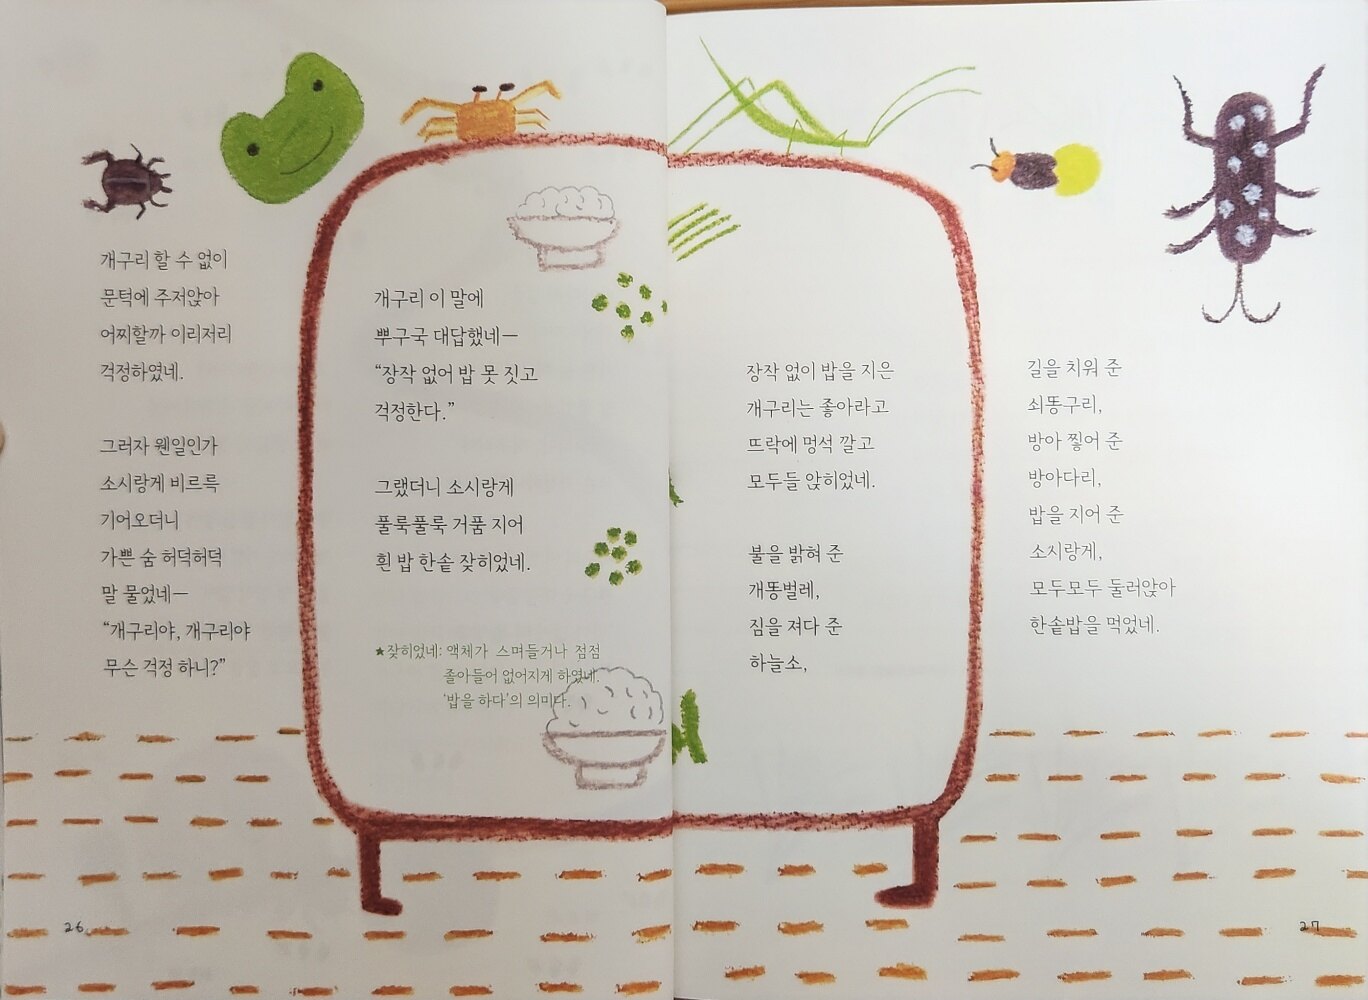 개구리 할 수 없이
문턱에 주저앉아
어찌할까 이리저리
걱정하였네.
그러자 웬일인가
소시랑게 비르륵
기어오더니
가쁜 숨 허덕허덕
말 물었네—
“개구리야, 개구리야
무슨 걱정 하니?”
개구리 이 말에
뿌구국 대답했네—
“장작 없어 밥 못 짓고
걱정한다.”
그랬더니 소시랑게
풀룩풀룩 거품 지어
흰 밥 한솥 잦히었네.
★잦히었네: 액체가 스며들거나 점점
졸아들어 없어지게 하였네.
‘밥을 하다’의 의미다.
26
장작 없이 밥을 지은
개구리는 좋아라고
뜨락에 멍석 깔고
모두들 앉히었네.
불을 밝혀 준
개똥벌레,
짐을 져다 준
하늘소,
길을 치워 준
쇠똥구리,
방아 찧어 준
방아다리,
밥을 지어 준
소시랑게,
모두모두 둘러앉아
한솥밥을 먹었네.
27